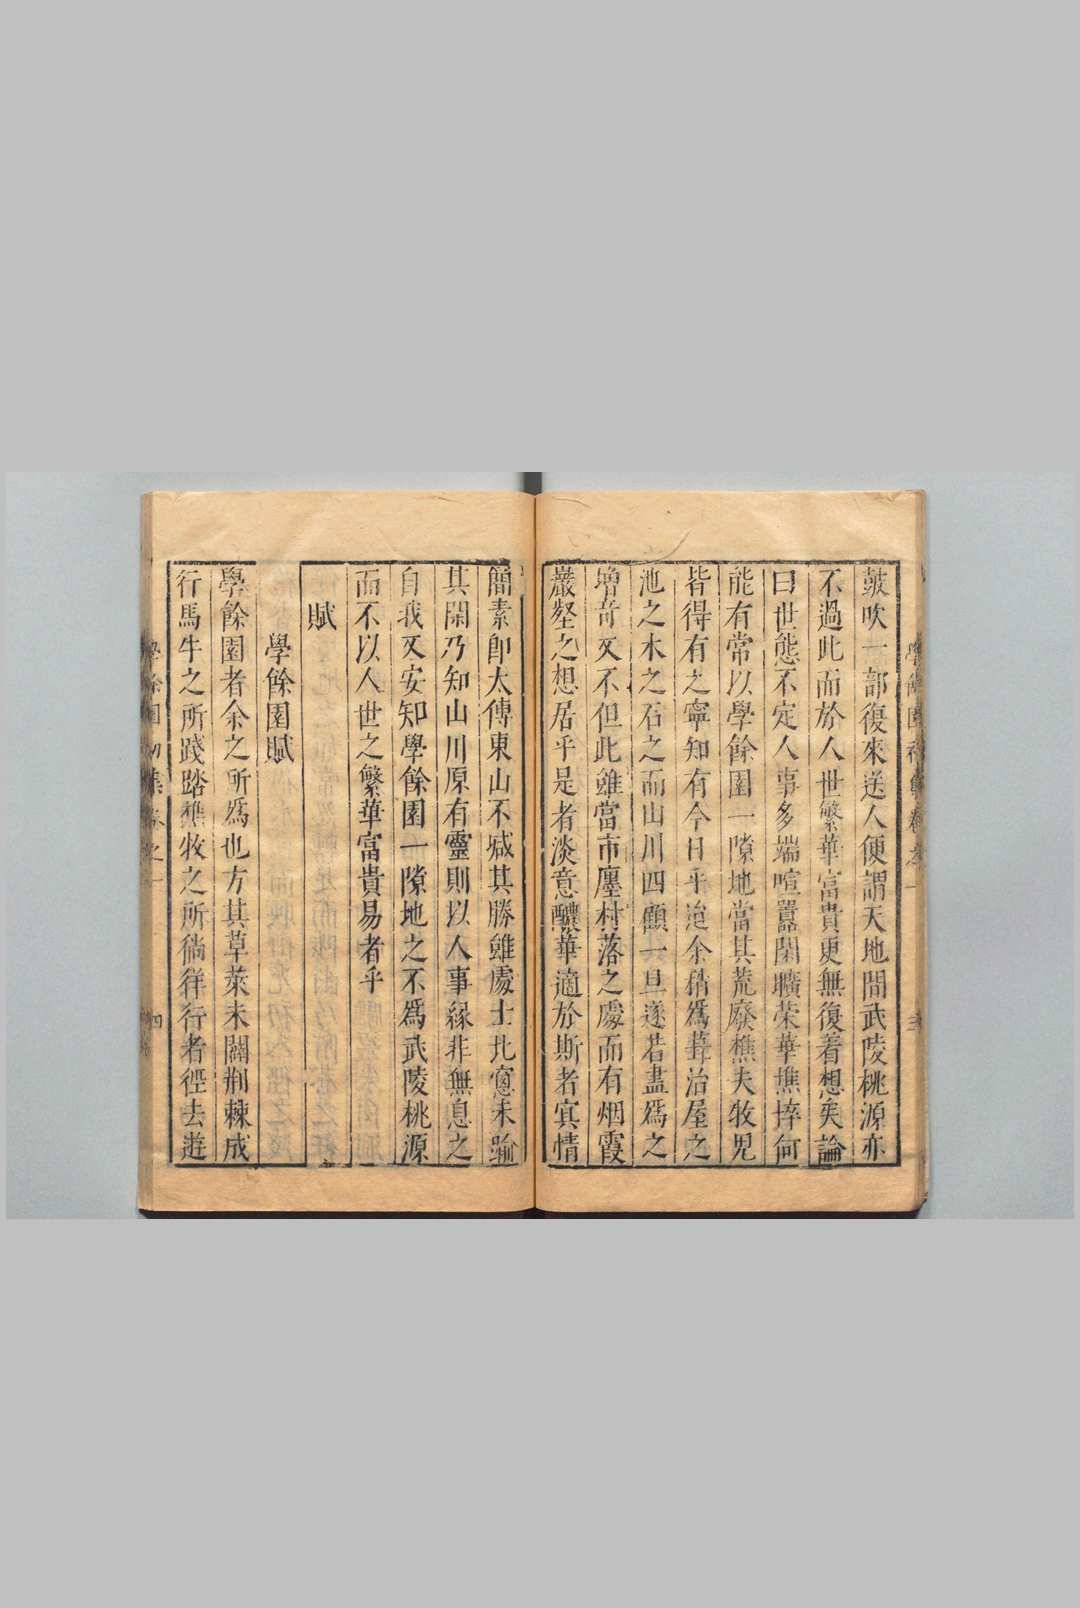 鼓吹一部復來送人便謂天地間武陵桃源亦
不過此而於人世繁華富貴更無復着想矣論
曰世態不定人事多端喧囂閑曠榮華憔悴何
能有常以學餘園一隙地當其荒廢樵夫牧児
皆得有之寧知有今日乎迨余稍為葺治屋之
池之木之石之而山川四顧一旦遂若盡為之
增奇又不但此雖當市廛村落之處而有烟霞
巖壑之想居乎是者淡意醲華適於斯者寘情
簡素卽太傅東山不減其勝雖處士北窻未踰
其閑乃知山川原有靈則以人事緣非無息之
自我又安知學餘園一隙地之不為武陵桃源
而不以人世之繁華富貴易者乎
賦
學餘園賦
學餘園者余之所為也方其草萊未闢荆棘成
行馬牛之所踐踏樵牧之所徜徉行者徑去遊
學餘園初集 卷之一 四